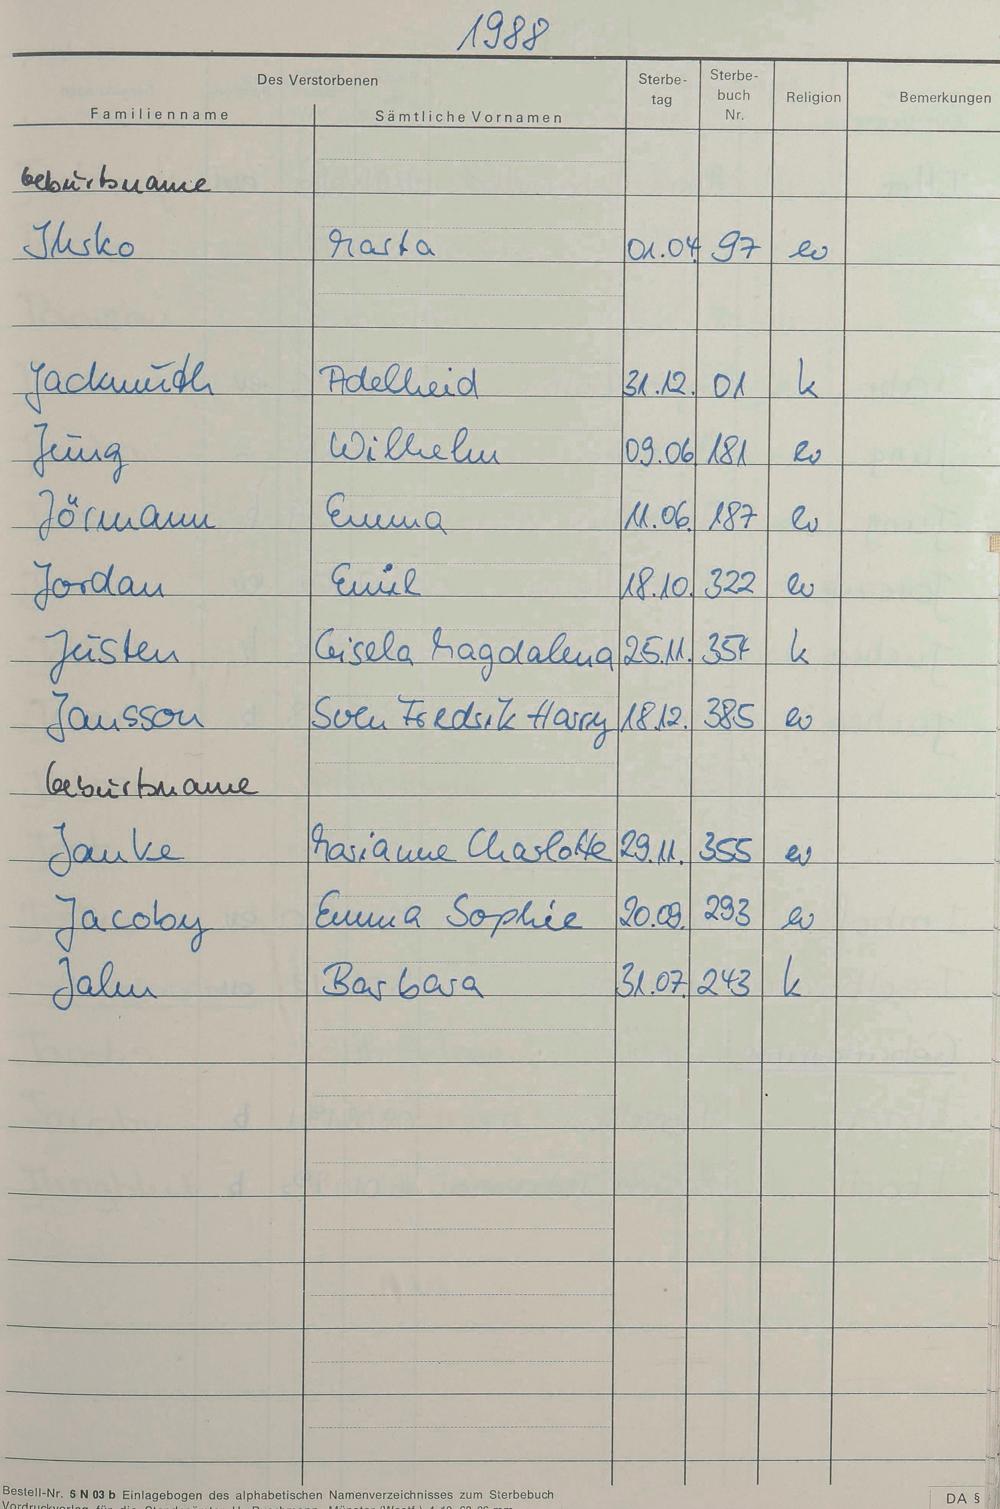 1988
Des Verstorbenen
Familienname
Sämtliche Vornamen
Sterbe-
tag
Sterbe-
buch
Nr.
Religion
Bemerkungen
Geburtsname
Marta 01.04. 97 ev
Jackmuth Adelheid 31.12. 01 k
Jung Wilhelm 09.06 181 ev
Jörmann Emma 11.06. 187 ev
Jordan Emil 18.10. 322 ev
Justen Gisela Magdalena 25.11. 354 k
Jansson Sven Fredrik Harry 18.12. 385 ev
Geburtsname
Janke Marianne Charlotte 29.11. 355 ev
Jacoby Emma Sophie 20.09. 293 ev
Jahn Barbara 31.07. 243 k
Bestell-Nr. 5 N 03 b Einlagebogen des alphabetischen Namenverzeichnisses zum Sterbebuch
DA §